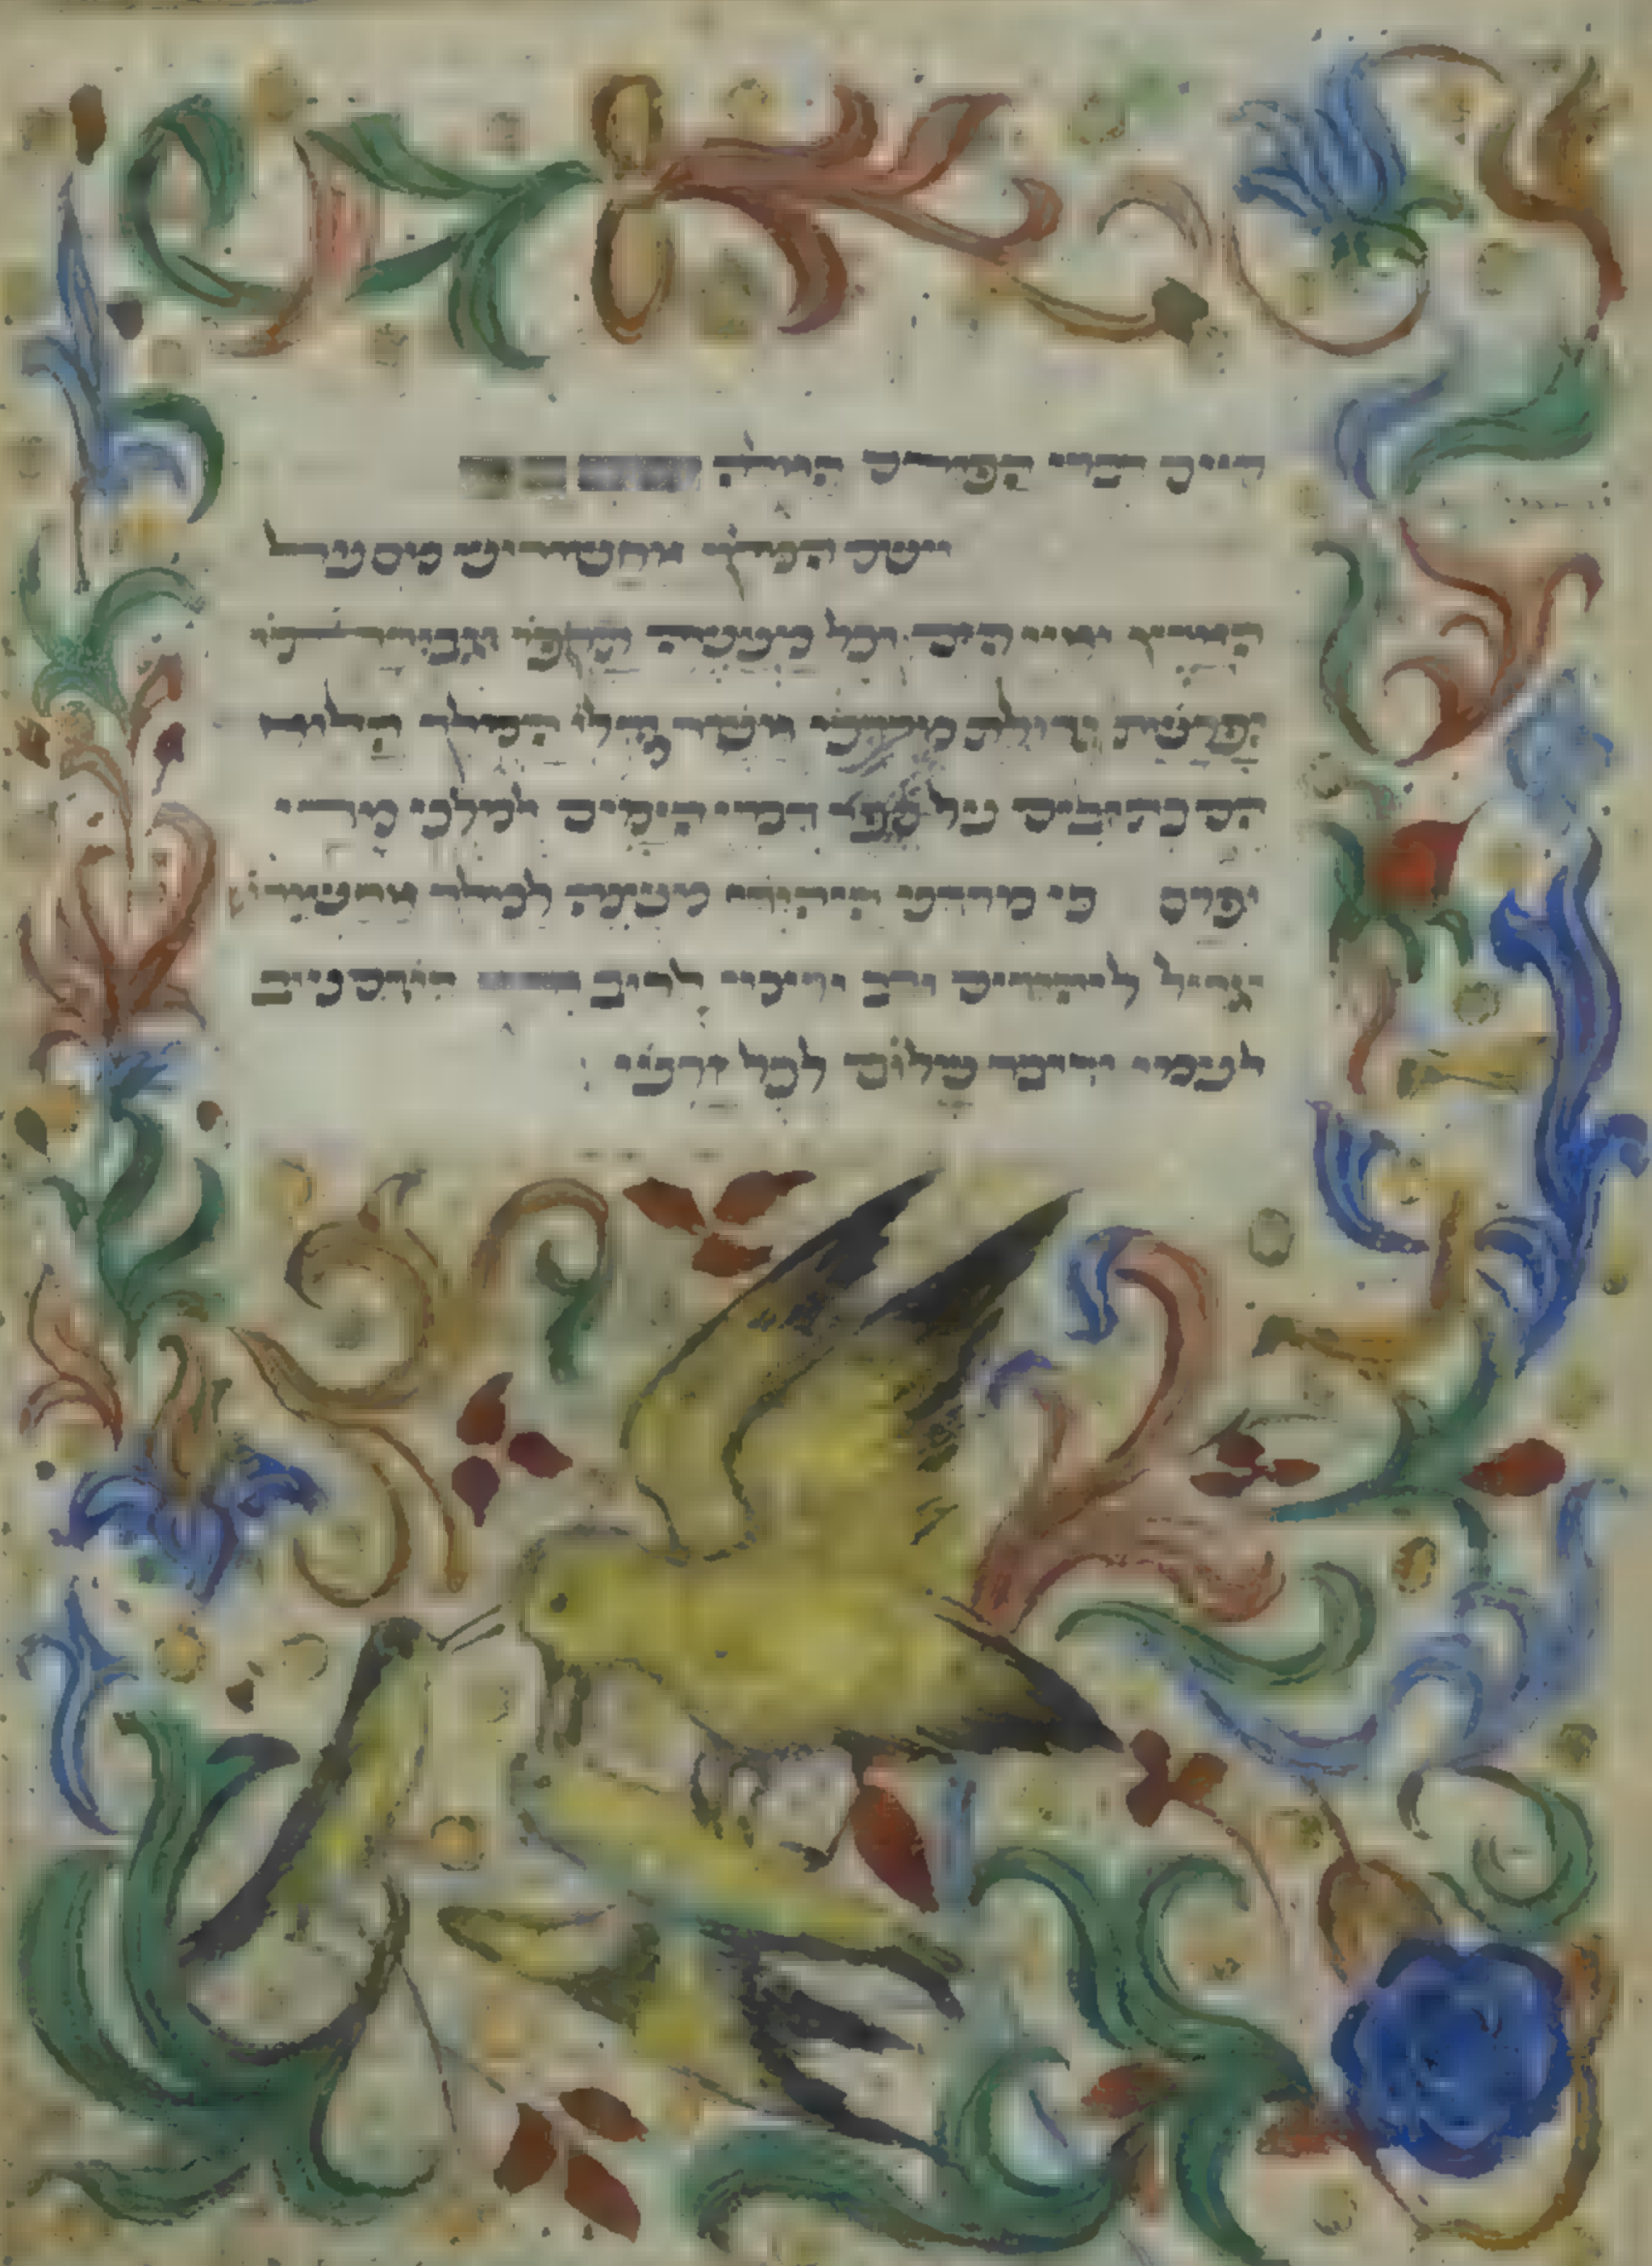 קיים דברי הפורים האלה
וישם המלך אחשורוש מס על
הארץ ואיי הים וכל מעשה תקפו וגבורתו
ופרשת גדולת מרדכי אשר גדלו המלך הלוא
הם כתובים על ספר דברי הימים למלכי מדי
ופרס כי מרדכי היהודי משנה למלך אחשורוש
וגדול ליהודים לרוב טוב
לעמו ודובר שלום לכל זרעו